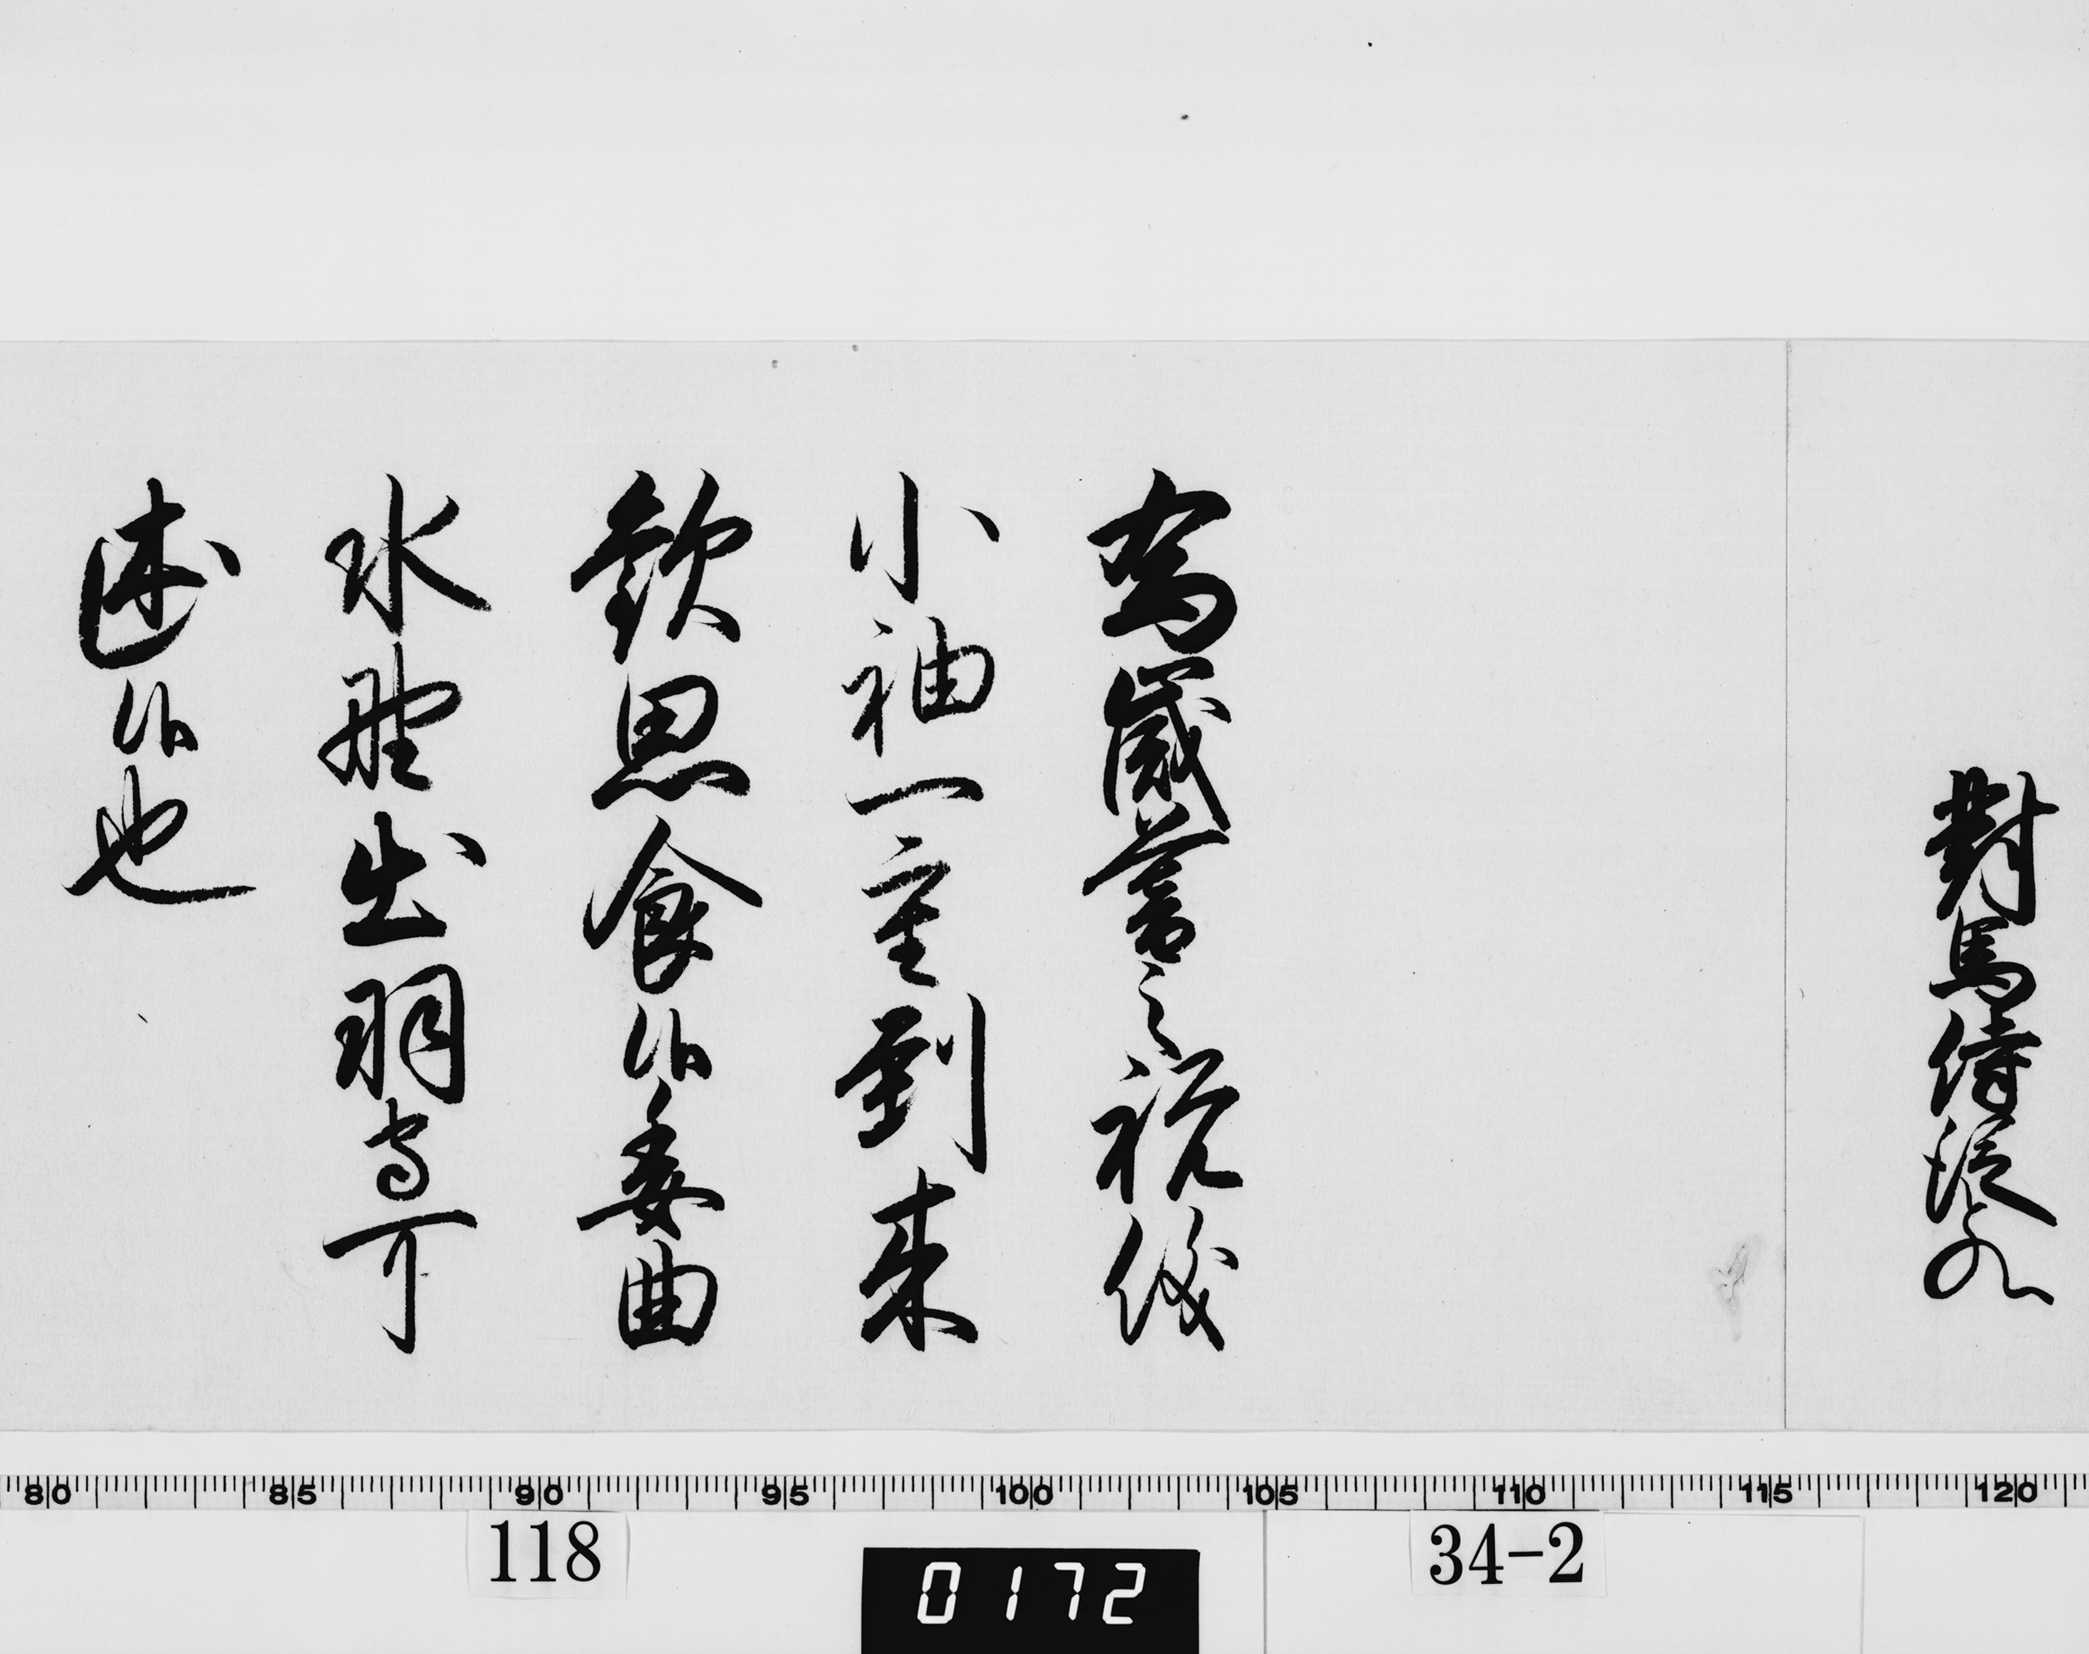 對馬侍従殿
為歳暮之祝儀
小袖一重到来
歓思食候委曲
水野出羽守可
述候也
80 85 90 95 100 105 110 115 120
118
0172
34-2